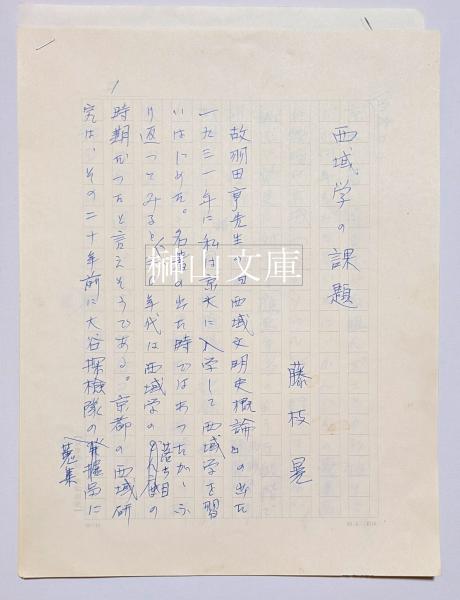 西域学の課題
藤枝晃
故羽田亨先生の『西域文明史概論』の出た
一九三一年に私は京大に入学して西域学を習
いはじめた。名著の出た時ではあったが、ふ
り返ってみると、年代は西域学の落ち目の
時期だったと言えそうである。京都の西域研
究は、その二十年前に大谷探検隊の発掘品に
蒐集
榊山文庫
1